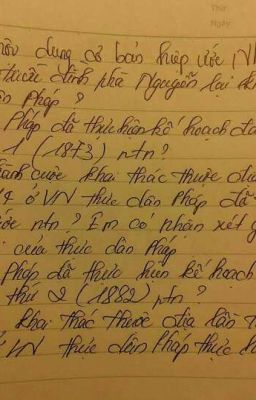 Thứ
Ngày
nội dung cơ bản hiệp ước
triều đình nhà Nguyễn lại kí
Pháp ?
Pháp đã thực hiện kế hoạch đá
1 (1873) ntn?
cuộc khai thác thuộc địa
ở VN thực dân Pháp đã
ntn ? Em có nhận xét g
của thực dân Pháp
Pháp đã thực hiện kế hoạch
thứ 2 (1882) ntn ?
khai thác thuộc địa lần
VN thực dân Pháp thực h